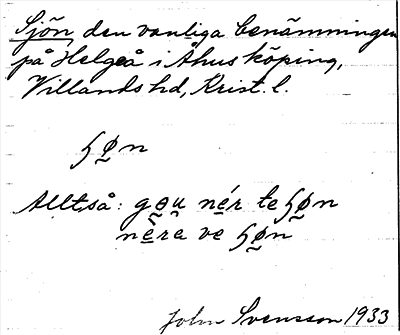 Sjön, den vanliga benämningen
på Helgeå i Åhus köping,
Villands hd, Krist. l.
ɧø̠n
Alltså: gɵ̠u̯ né̠r te ɧø̠n
nè̠ra ve ɧø̠n
John Svensson 1933